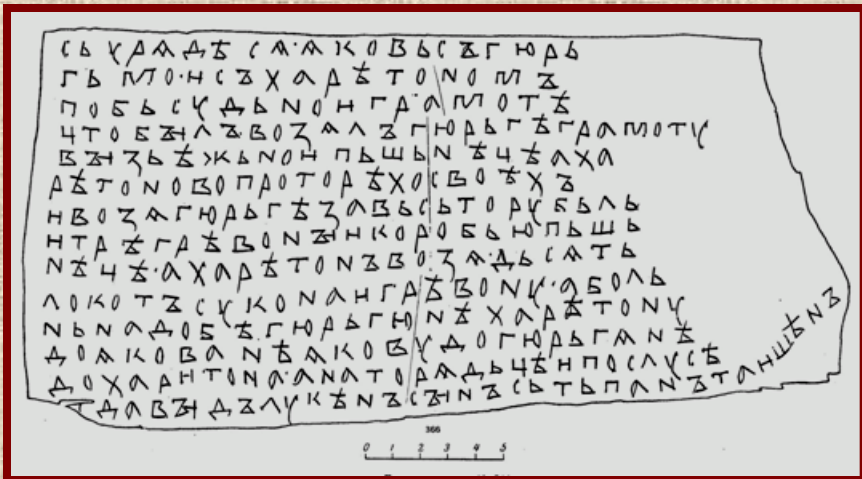 СЬ УРѦДѢ СѦ·ѦКОВЬ СЪ ГЮРЬ
ГЬ МО·И СЪ ХАРѢТОNОМЪ
ПО БЬСУДЬNОИ ГРАМОТѢ
ЧТО БЪІЛЪ ВОЗѦЛЪ ГЮРЬГѢ ГРАМОТУ
ВЪІЗЬѢЖЬNОИ ПЬШЬNѢЧѢ А ХА
РѢТОNО ВО ПРОТОРѢХО СВОѢХЪ
И ВОЗѦ ГЮРЬГѢ ЗА ВЬСЬ ТО РУБЬЛЬ
И ТРѢ ГРѢВОNЪІ И КОРОБЬЮ ПЬШЬ
NѢЧѢ·А ХАРѢТОNЪ ВОЗѦ·ДЬСѦТЬ
ЛОКОТЪ СУКОNА И ГРѢВОNУ·А БОЛЬ
NЬ NАДОБѢ ГЮРЬГЮ NѢ ХАРѢТОNУ
ДО ѦКОВА NѢ ѦКОВУ ДО ГЮРЬГѦ NѢ
ДО ХАРИТОNА·А NА ТО РѦДЬЧѢ И ПОСЛУСѢ
ДАВЪІДЪ ЛУКѢNЪ СЪІNЪ СЬТЬПАNЪ ТАИШѢNЪ
366
0 1 2 3 4 5